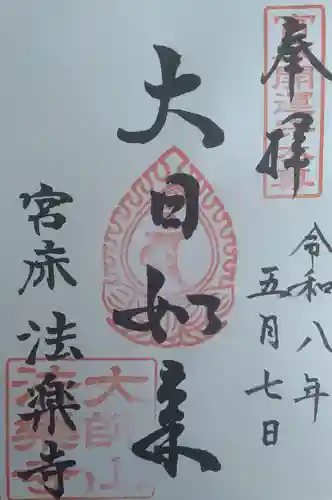 奉拝
令和八年
五月七日
大日如来
宮赤 法楽寺
大師山
法楽寺